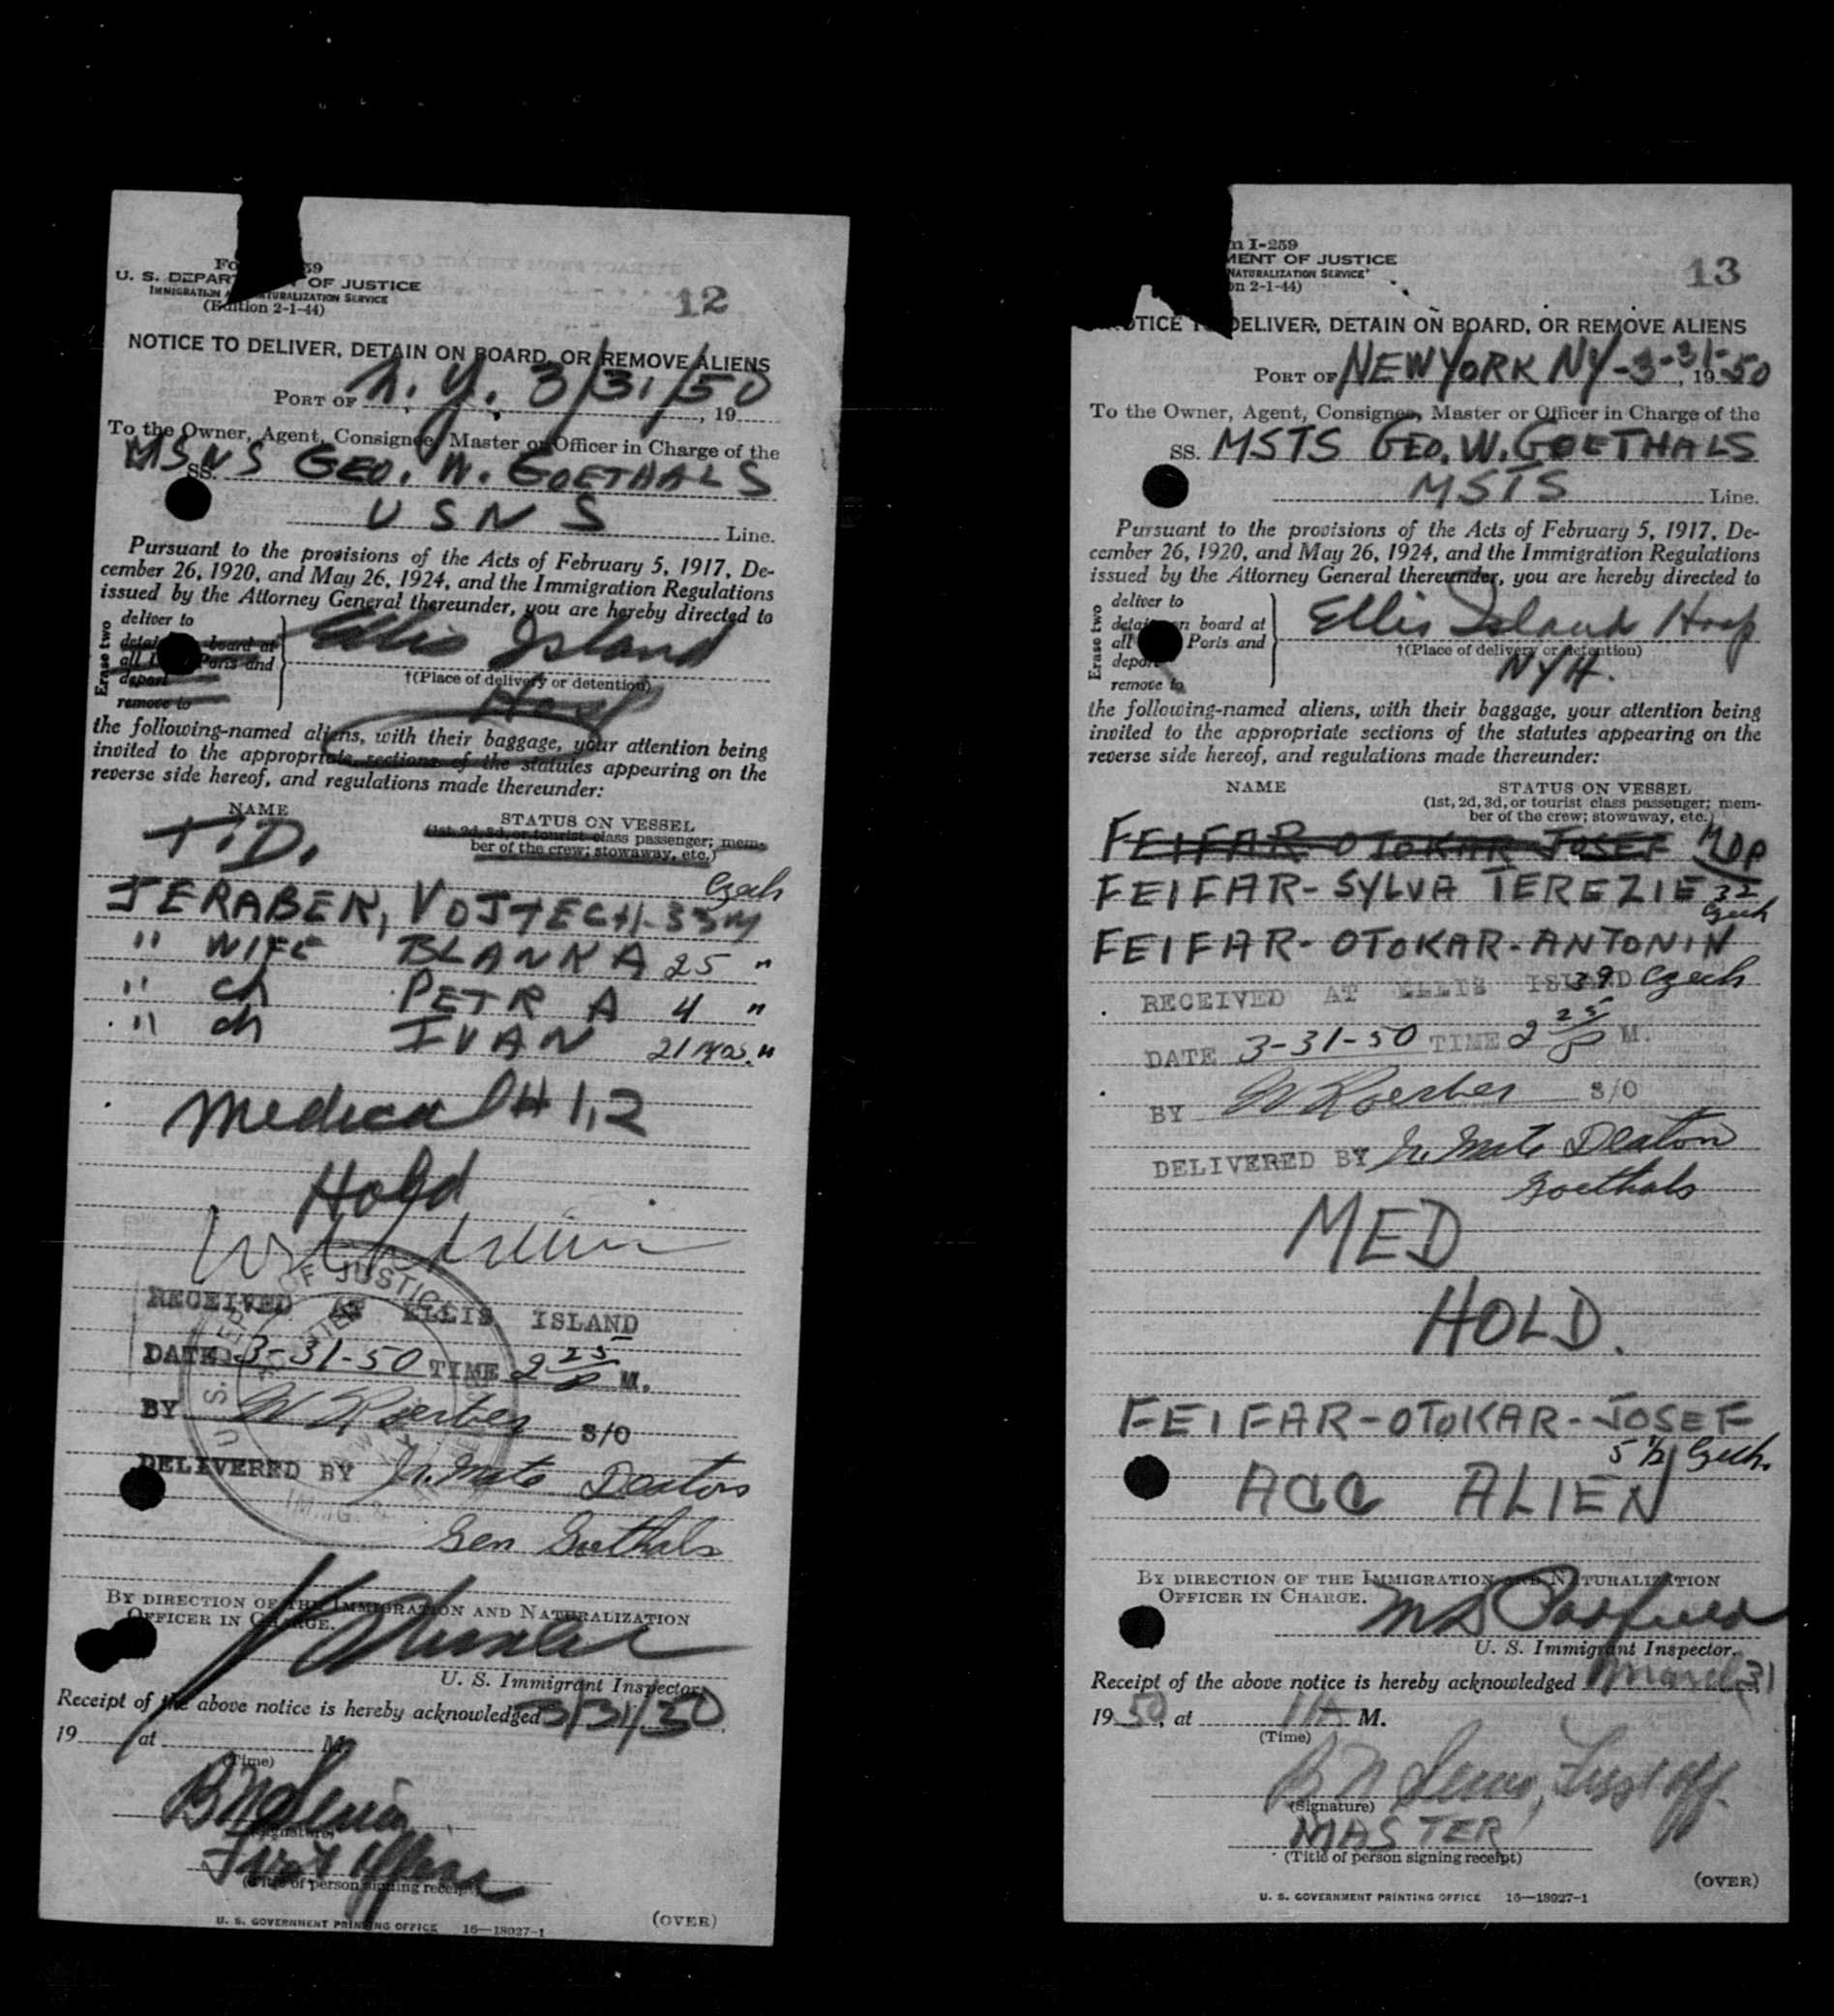 59
U. S. DEPAR OF JUSTICE
IMMIGRATION NATURALIZATION SERVICE
(Edition 2-1-44)
12
NOTICE TO DELIVER, DETAIN ON BOARD, OR REMOVE ALIENS
PORT OF N. Y. 3/31/50, 19
To the Owner, Agent, Consignee, Master or Officer in Charge of the
MSNS SS. GEO. W. GOETHALS
USNS Line.
Pursuant to the provisions of the Acts of February 5, 1917, De-
cember 26, 1920, and May 26, 1924, and the Immigration Regulations
issued by the Attorney General thereunder, you are hereby directed to
Erase two
deliver to
detain board at
all Ports and
deport
remove to
Ellis Island
†(Place of delivery or detention)
Hosp
the following-named aliens, with their baggage, your attention being
invited to the appropriate sections of the statutes appearing on the
reverse side hereof, and regulations made thereunder:
NAME
STATUS ON VESSEL
(1st, 2d, 3d, or tourist class passenger; mem-
ber of the crew; stowaway, etc.)
T.D.
Czech
JERABEK, VOJTECH-33M
" WIFE BLANKA 25 "
" ch PETR A 4 "
" ch IVAN 21 mos. "
Medical # 1,2
Hold
RECEIVED AT ELLIS ISLAND
DATE 3-31-50 TIME 2 25 P M.
BY W Koerber S/O
DELIVERED BY Jr. Mate Deaton
Gen Goethals
U. S. DEPT. OF JUSTICE
BY DIRECTION OF THE IMMIGRATION AND NATURALIZATION
OFFICER IN CHARGE.
U. S. Immigrant Inspector.
Receipt of the above notice is hereby acknowledged 3/31/50
19 at M.
(Time)
(Signature)
First Officer
(Title of person signing receipt)
U. S. GOVERNMENT PRINTING OFFICE 16—18927-1
(OVER)
m I-259
MENT OF JUSTICE
NATURALIZATION SERVICE
on 2-1-44)
13
OTICE TO DELIVER, DETAIN ON BOARD, OR REMOVE ALIENS
PORT OF NEW YORK NY-3-31-, 19 50
To the Owner, Agent, Consignee, Master or Officer in Charge of the
SS. MSTS GEO. W. GOETHALS
MSTS Line.
Pursuant to the provisions of the Acts of February 5, 1917, De-
cember 26, 1920, and May 26, 1924, and the Immigration Regulations
issued by the Attorney General thereunder, you are hereby directed to
Erase two
deliver to
detain on board at
all Ports and
deport
remove to
Ellis Island Hosp
†(Place of delivery or detention)
NYH.
the following-named aliens, with their baggage, your attention being
invited to the appropriate sections of the statutes appearing on the
reverse side hereof, and regulations made thereunder:
NAME
STATUS ON VESSEL
(1st, 2d, 3d, or tourist class passenger; mem-
ber of the crew; stowaway, etc.)
FEIFAR OTOKAR JOSEF
FEIFAR-SYLVA TEREZIE 32 Czech
FEIFAR-OTOKAR-ANTONIN
39 Czech
RECEIVED AT ELLIS ISLAND
DATE 3-31-50 TIME 2 25 P M.
BY W Koerber S/O
DELIVERED BY Jr. Mate Deaton
Goethals
MED
HOLD.
FEIFAR-OTOKAR-JOSEF
5 1/2 Czech.
ACC ALIEN
BY DIRECTION OF THE IMMIGRATION AND NATURALIZATION
OFFICER IN CHARGE.
U. S. Immigrant Inspector.
Receipt of the above notice is hereby acknowledged March 31
19 50, at 11A M.
(Time)
(Signature)
MASTER
(Title of person signing receipt)
(OVER)
U. S. GOVERNMENT PRINTING OFFICE 16—18927-1